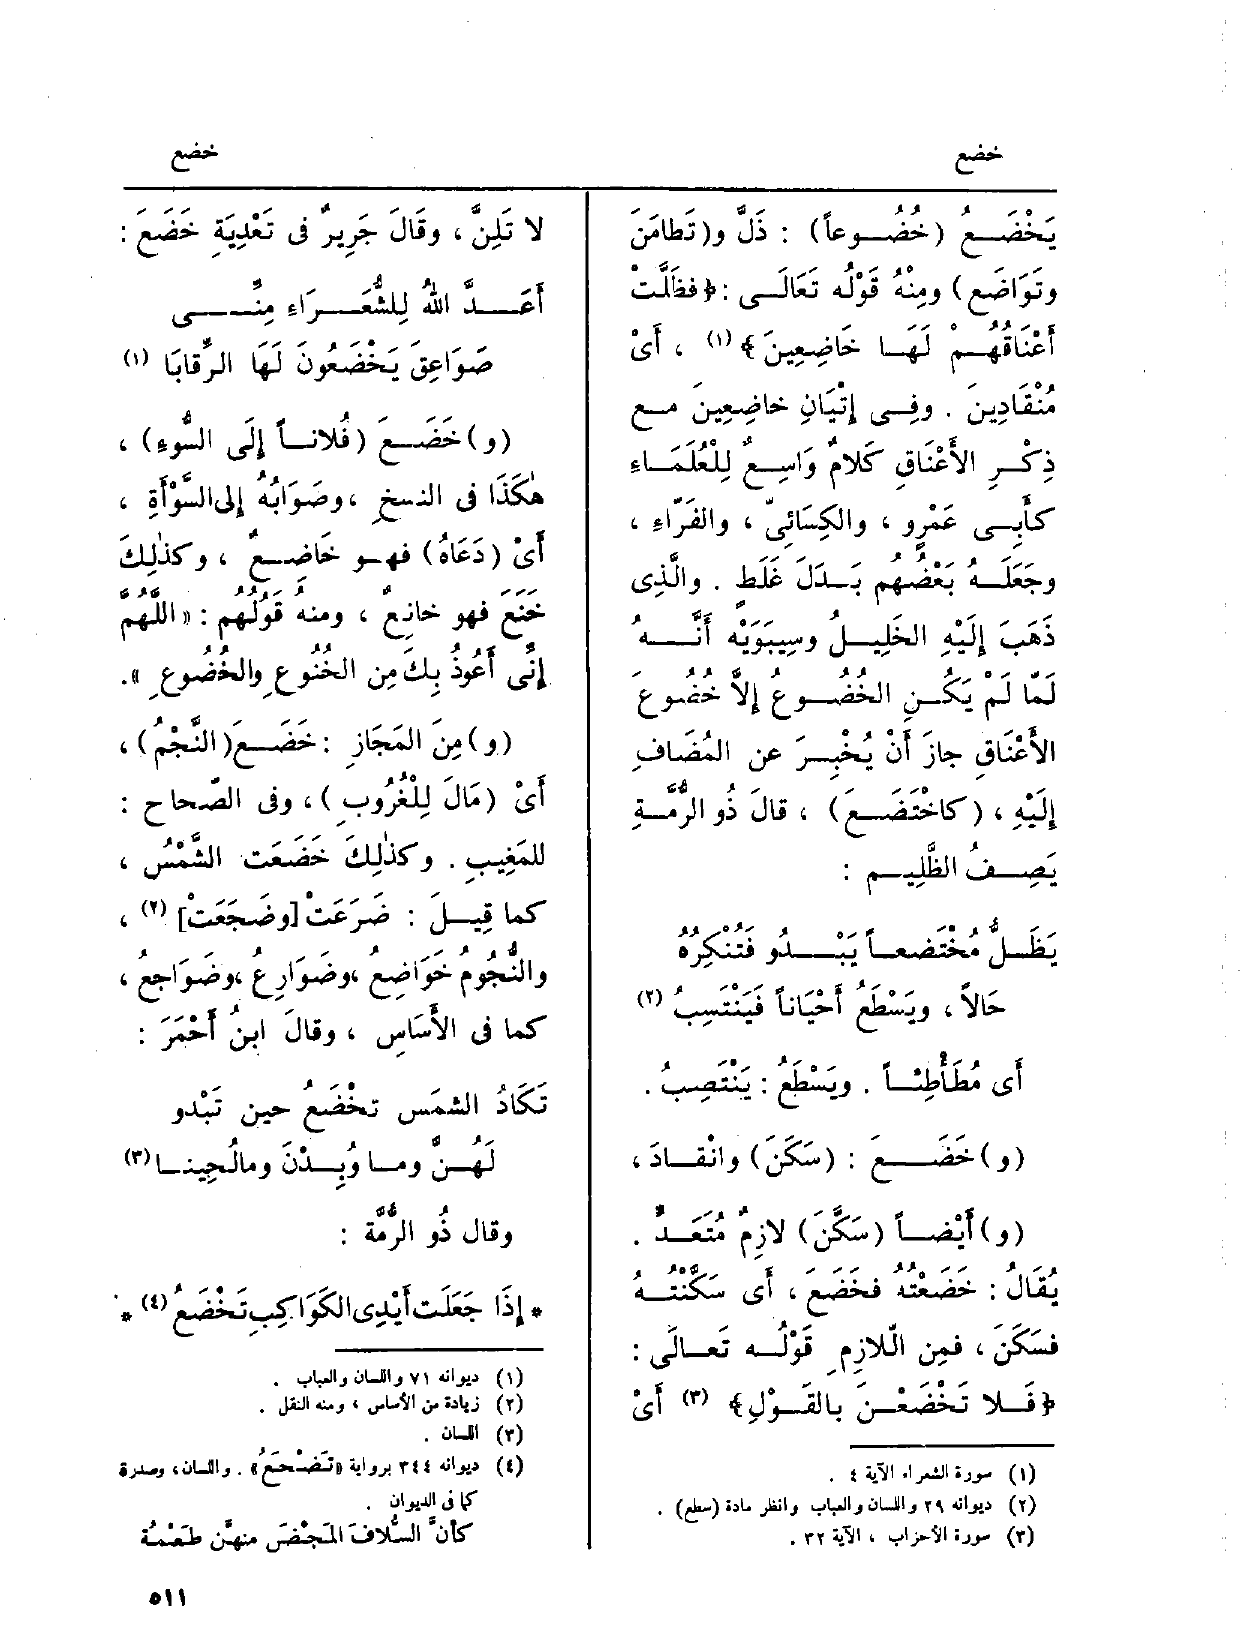 خضع
يَخْضَعُ (خُضُوعاً) : ذَلَّ و(تَطامَنَ
وتَوَاضَعَ) ومِنْهُ قَوْلُه تَعَالَى : ﴿فظَلَّتْ
أَعْنَاقُهُم لَهَا خَاضِعِينَ﴾ (١) ، أَىْ
مُنْقَادِينَ . وفِى إِتْيَانِ خاضِعِينَ مع
ذِكْرِ الأَعْنَاقِ كَلامٌ وَاسِعٌ لِلْعُلَمَاءِ
كأَبِى عَمْرٍو ، والكِسَائِىّ ، والفَرّاءِ ،
وجَعَلَهُ بَعْضُهُم بَدَلَ غَلَطٍ . والَّذِى
ذَهَبَ إِلَيْهِ الخَلِيلُ وسِيبَوَيْهِ أَنَّهُ
لَمّا لَمْ يَكُنِ الخُضُوعُ إِلاَّ خُضُوعَ
الأَعْنَاقِ جازَ أَنْ يُخْبِرَ عن المُضَافِ
إِلَيْهِ ، (كاخْتَضَعَ) ، قالَ ذُو الرُّمَّةِ
يَصِفُ الظَّلِيم :
يَظَلُّ مُخْتَضِعاً يَبْدُو فَتُنْكِرُهُ
حَالاً ، ويَسْطَعُ أَحْيَاناً فيَنْتَسِبُ (٢)
أَى مُطَأْطِئاً . ويَسْطَعُ : يَنْتَصِبُ .
(و) خَضَعَ : (سَكَنَ) وانْقادَ ،
(و) أَيْضاً (سَكَّنَ) لازِمٌ مُتَعَدٍّ .
يُقالُ : خَضَعْتُه فخَضَعَ ، أَى سَكَّنْتُهُ
فسَكَنَ ، فمِن اللّازِمِ قَوْلُه تَعالَى :
﴿فَلا تَخْضَعْنَ بالقَوْلِ﴾ (٣) أَىْ
(١) سورة الشعراء الآية ٤ .
(٢) ديوانه ٢٩ واللسان والعباب وانظر مادة (سطع) .
(٣) سورة الأحزاب ، الآية ٣٢ .
خضع
لا تَلِنَّ ، وقالَ جَرِيرٌ فى تَعْدِيَةِ خَضَعَ :
أَعَدَّ اللهُ لِلشُّعَرَاءِ مِنِّى
صَوَاعِقَ يَخْضَعُونَ لَهَا الرِّقابَا (١)
(و) خَضَعَ (فُلاناً إِلَى السُّوءِ) ،
هٰكَذَا فى النسخِ ، وصَوَابُهُ إِلى السَّوْأَةِ ،
أَىْ (دَعَاهُ) فهو خَاضِعٌ ، وكذٰلِكَ
خَنَعَ فهو خانِعٌ ، ومنه قَوْلُهُم : «اللَّهُمَّ
إِنِّى أَعُوذُ بِكَ مِن الخُنُوعِ والخُضُوعِ» .
(و) مِنَ المَجَازِ : خَضَعَ (النَّجْمُ) ،
أَىْ (مَالَ لِلْغُرُوبِ) ، وفى الصّحاح :
للمَغِيبِ . وكذٰلِكَ خَضَعَت الشَّمْسُ ،
كما قِيلَ : ضَرَعَتْ [وضَجَعَتْ] (٢) ،
والنُّجُومُ خَوَاضِعُ ، وضَوَارِعُ ، وضَوَاجِعُ ،
كما فى الأَسَاسِ ، وقالَ ابنُ أَحْمَرَ :
تَكَادُ الشَّمسُ تَخْضَعُ حين تَبْدو
لَهُنَّ وما وُبِدْنَ ومالُحِينا (٣)
وقال ذُو الرُّمَّة :
* إِذَا جَعَلَت أَيْدِى الكَوَاكِبِ تَخْضَعُ (٤) *
(١) ديوانه ٧١ واللسان والعباب .
(٢) زيادة من الأساس ، ومنه النقل .
(٣) اللسان .
(٤) ديوانه ٣٤٤ برواية «تَضْجَعُ» . واللسان ، وصدرة
كما فى الديوان .
كأنَّ السُّلافَ المَحْضَ منهن طَعْمُهُ
٥١١